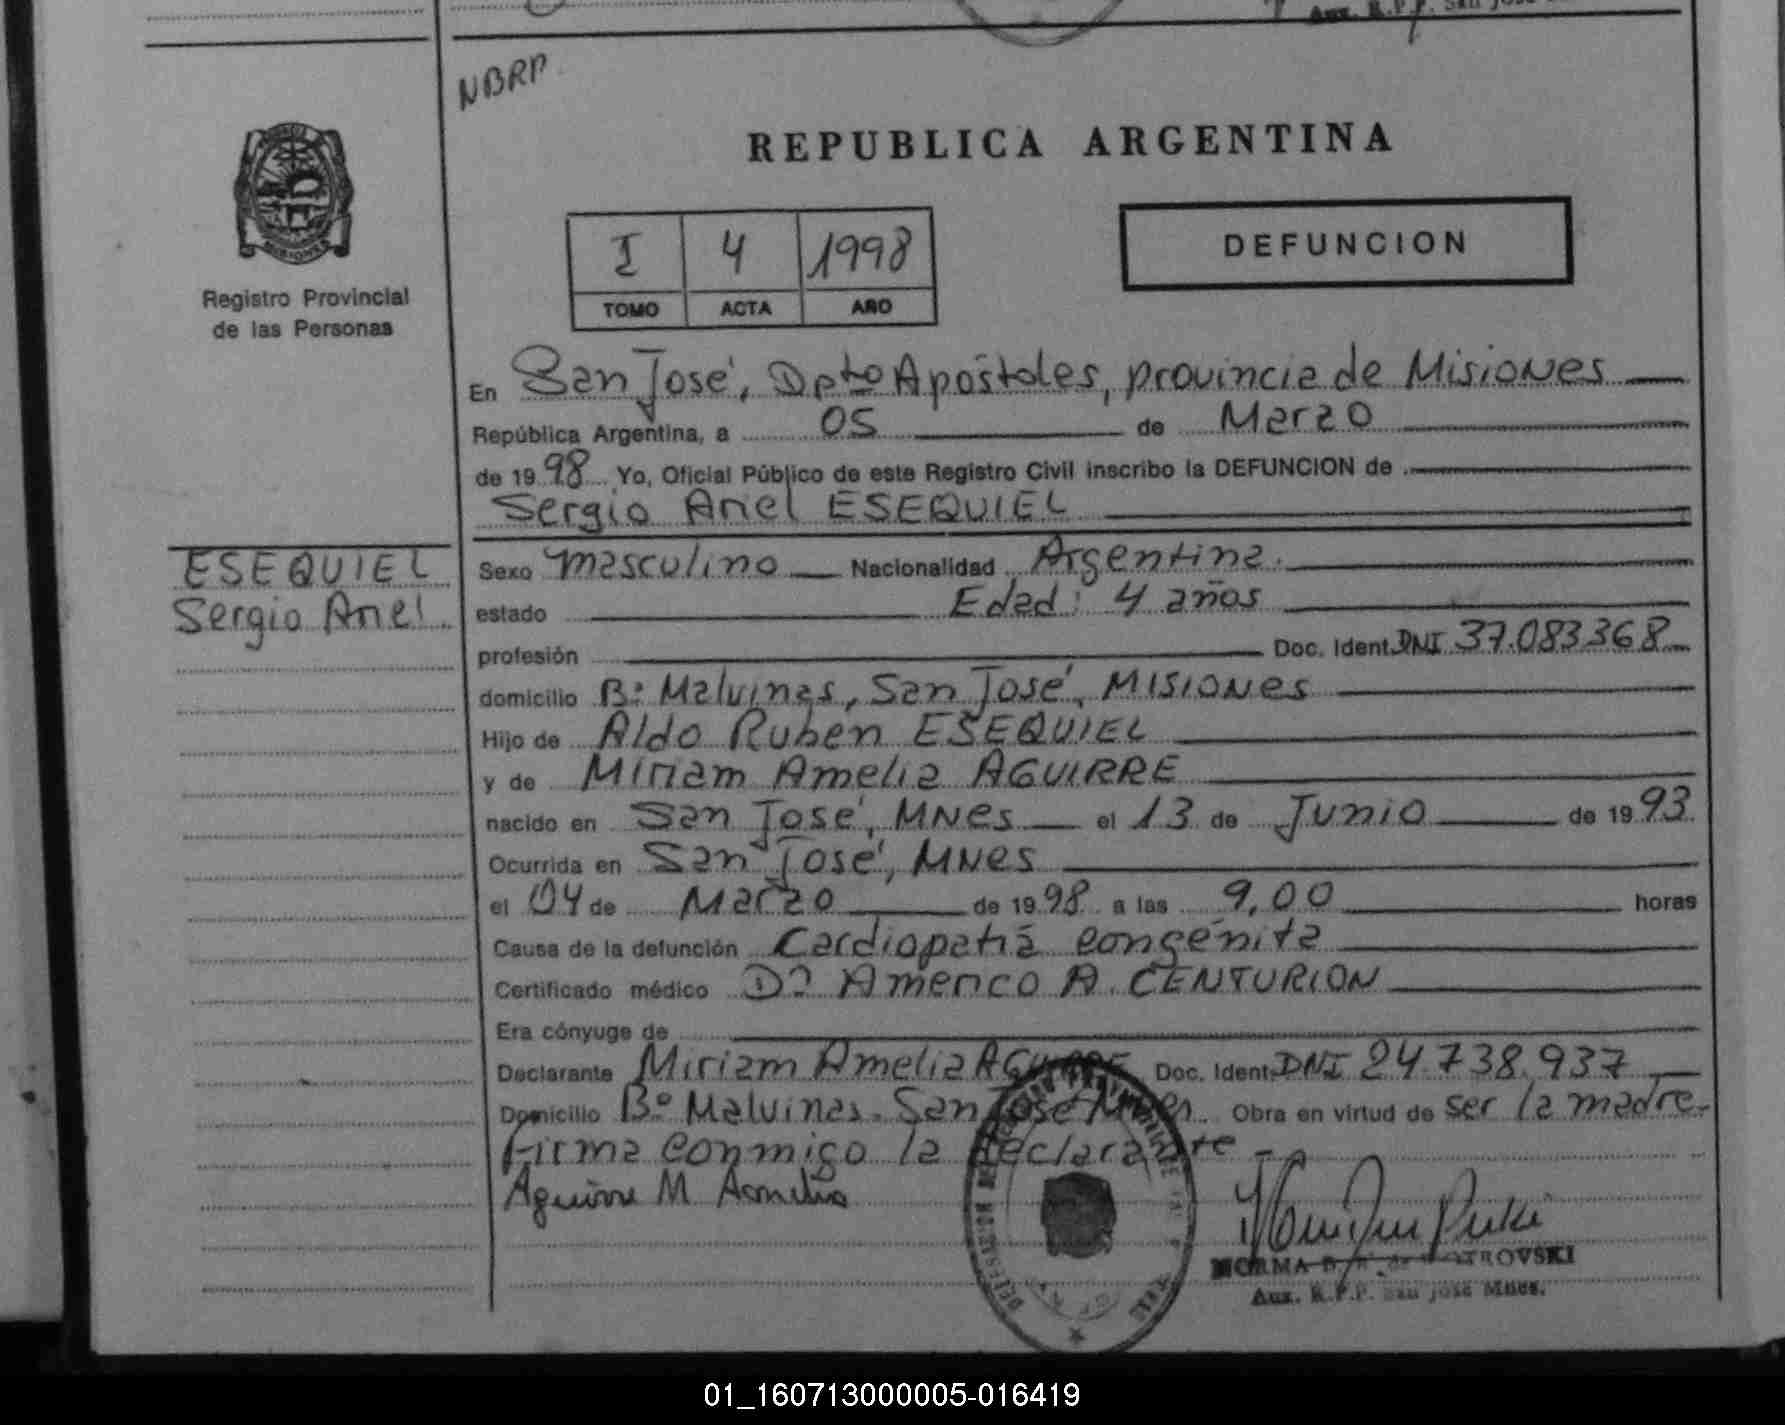 Aux. R.P.P. San José
NBRP
REPUBLICA ARGENTINA
MISIONES
Registro Provincial
de las Personas
I 4 1998
TOMO ACTA AÑO
DEFUNCION
En San José, Dpto Apóstoles, provincia de Misiones
República Argentina, a 05 de Marzo
de 1998 Yo, Oficial Público de este Registro Civil inscribo la DEFUNCION de
Sergio Ariel ESEQUIEL
ESEQUIEL
Sergio Ariel
Sexo masculino Nacionalidad Argentina.
estado Edad: 4 años
profesión Doc. Ident. DNI 37.083.368
domicilio Bº Malvinas, San José, MISIONES
Hijo de Aldo Rubén ESEQUIEL
y de Miriam Amelia AGUIRRE
nacido en San José, MNes el 13 de Junio de 1993.
Ocurrida en San José, MNes
el 04 de Marzo de 1998 a las 9,00 horas
Causa de la defunción Cardiopatía congénita
Certificado médico Dr Americo A. CENTURION
Era cónyuge de
Declarante Miriam Amelia AGUIRRE Doc. Ident. DNI 24.738.937
Domicilio Bº Malvinas. San José Mnes. Obra en virtud de ser la madre.
Firma conmigo la declarante
Aguirre M Amelia
NORMA B. de PIOTROVSKI
Aux. R.P.P. San José Mnes.
01_160713000005-016419